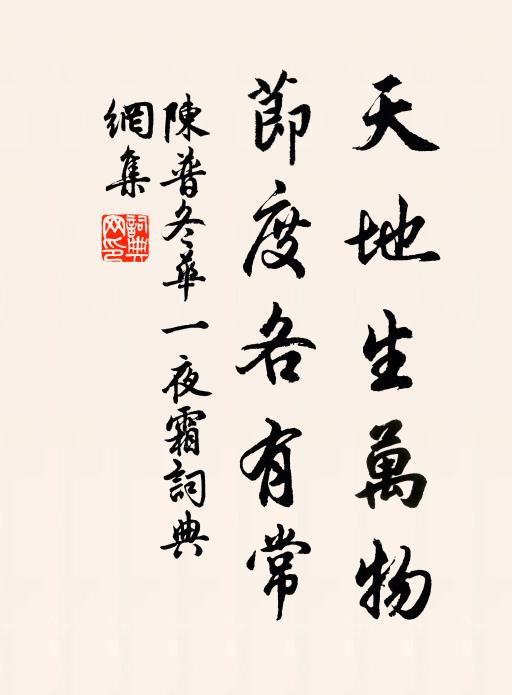 天地生萬物
節度各有常
陳普冬華一夜霜詞典
網集
詞典网印